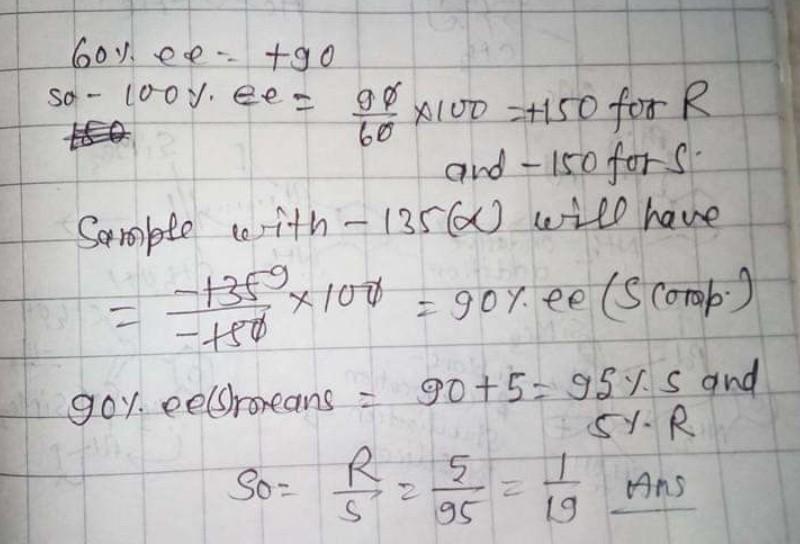 60% ee = +90
so - 100% ee = 90/60 ×100 = +150 for R
and - 150 for S.
Sample with - 135(α) will have
= -135/-150 × 100 = 90% ee (S comp.)
90% ee(s) means = 90+5 = 95% S and
5% R
So = R/S = 5/95 = 1/19 Ans